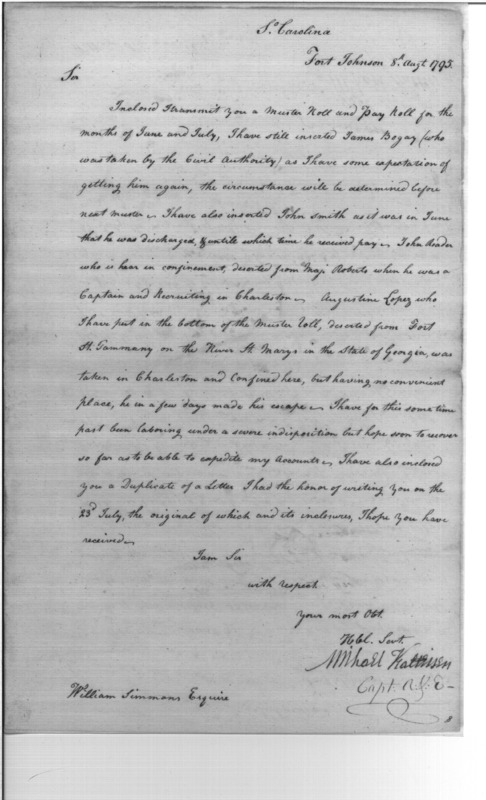 So Carolina
Fort Johnson 8th Augt 1795.
Sir
Inclosed I transmit you a Muster Roll and Pay Roll for the
months of June and July, I have still inserted James Bogay (who
was taken by the Civil Authority) as I have some expectation of
getting him again, the circumstance will be determined before
next muster. I have also inserted John Smith as it was in June
that he was discharged, & untile which time he received pay. John Reader
who is hear in confinement, deserted from Majr Roberts when he was a
Captain and Recruiting in Charleston. Augustine Lopez who
I have put in the bottom of the Muster Roll, deserted from Fort
St. Tammany on the River St. Marys in the State of Georgia, was
taken in Charleston and Confined here, but having no convenient
place, he in a few days made his escape. I have for this some time
past been laboring under a severe indisposition but hope soon to recover
so far as to be able to expedite my Accounts. I have also inclosed
you a Duplicate of a Letter I had the honor of writing you on the
23d July, the original of which and its inclosures, I hope you have
received.
I am Sir
with respect
your most Obt.
Hbl. Servt.
Michael Kalteisen
Capt. A & E
William Simmons Esquire